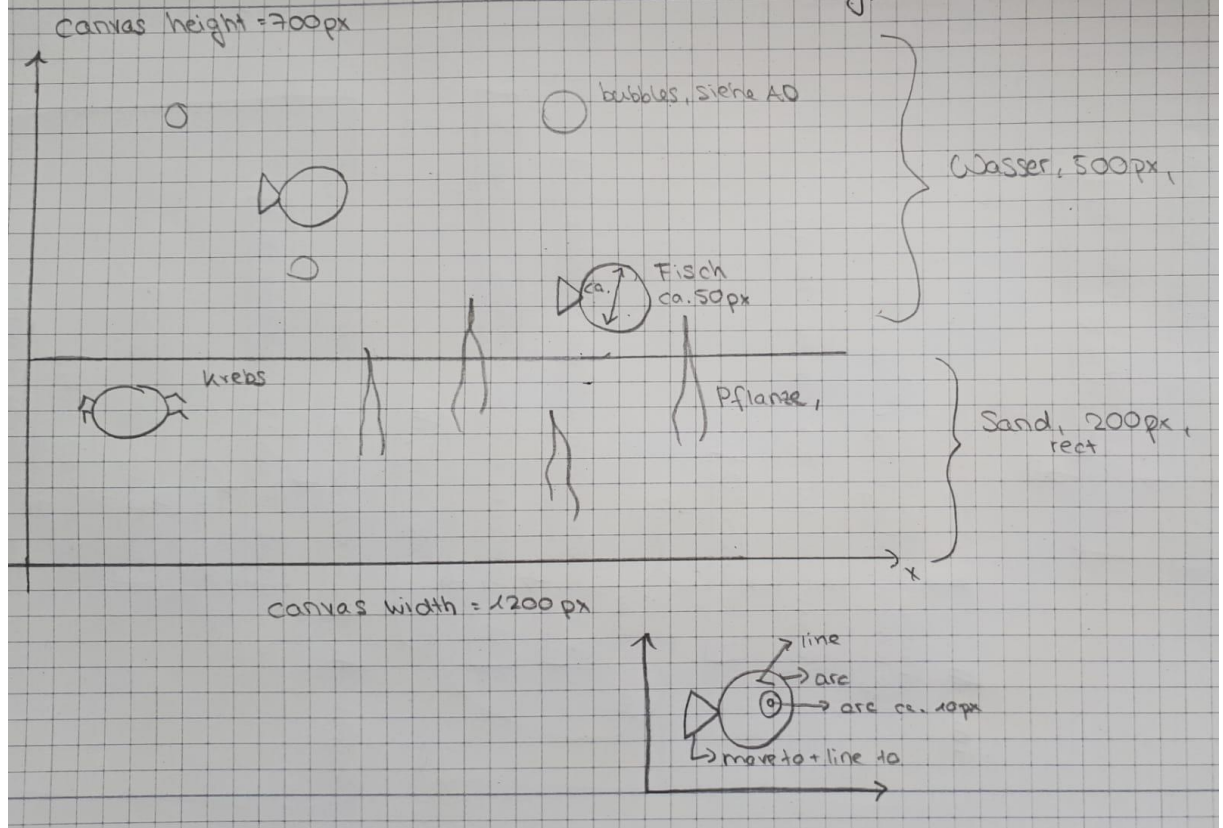 canvas height = 700px
bubbles, siehe AD
Wasser, 500px,
Fisch
ca. 50px
ca.
Krebs
Pflanze,
Sand, 200px,
rect
x
canvas width = 1200px
line
arc
arc ca. 10px
move to + line to